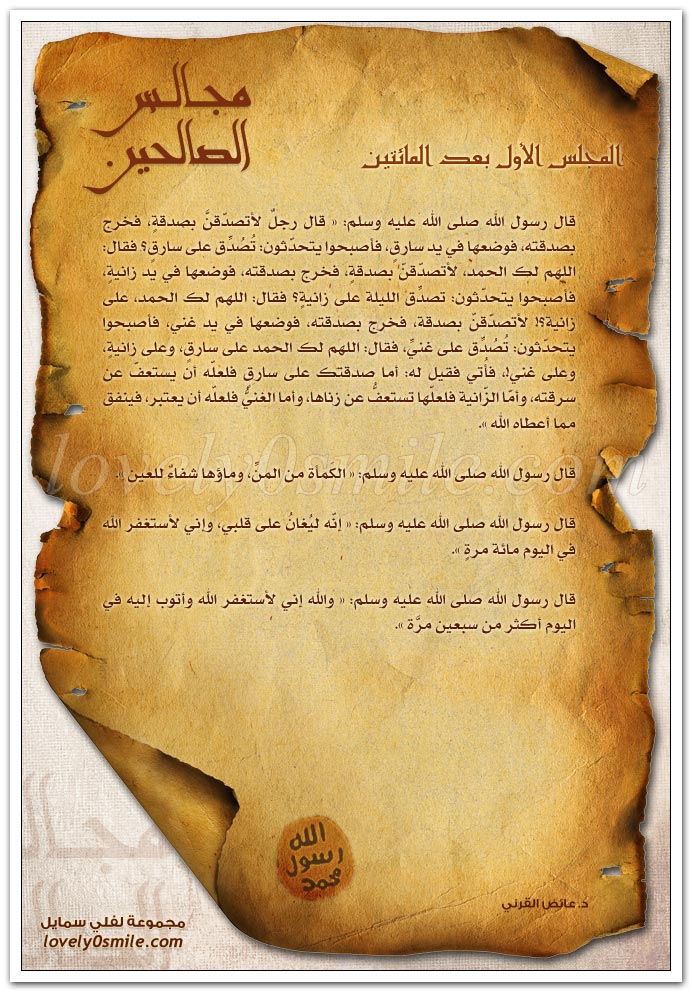 مجالس
الصالحين
المجلس الأول بعد المائتين
قال رسول الله صلى الله عليه وسلم: « قال رجلٌ لأتصدّقنَّ بصدقة، فخرج
بصدقته، فوضعها في يد سارقٍ، فأصبحوا يتحدّثون: تُصُدِّق على سارق؟ فقال:
اللهم لك الحمد، لأتصدّقنّ بصدقةٍ، فخرج بصدقته، فوضعها في يد زانيةٍ،
فأصبحوا يتحدّثون: تصدِّق الليلة على زانيةٍ؟ فقال: اللهم لك الحمد، على
زانية؟! لأتصدّقنّ بصدقة، فخرج بصدقته، فوضعها في يد غني، فأصبحوا
يتحدّثون: تُصُدِّق على غنيِّ، فقال: اللهم لك الحمد على سارقٍ، وعلى زانيةٍ،
وعلى غني!، فأتي فقيل له: أما صدقتك على سارق فلعلّه أن يستعفّ عن
سرقته، وأمّا الزّانية فلعلّها تستعفُّ عن زناها، وأما الغنيُّ فلعلّه أن يعتبر، فينفق
مما أعطاه الله ».
قال رسول الله صلى الله عليه وسلم: « الكمأة من المنِّ، وماؤها شفاءٌ للعين ».
قال رسول الله صلى الله عليه وسلم: « إنّه ليُغانُ على قلبي، وإني لأستغفر الله
في اليوم مائة مرةٍ ».
قال رسول الله صلى الله عليه وسلم: « والله إني لأستغفر الله وأتوب إليه في
اليوم أكثر من سبعين مرَّة ».
lovely0smile.com
الله
رسول
محمد
د.عائض القرني
مجموعة لفلي سمايل
lovely0smile.com